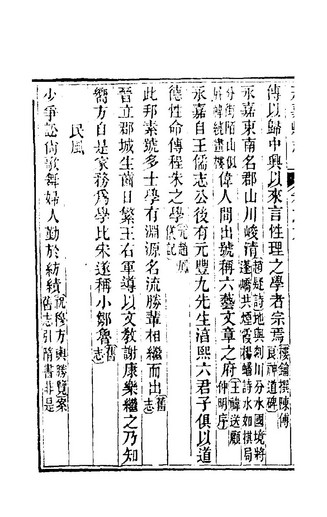 傅以歸中興以來言性理之學者宗焉樓鑰撰陳傅良神道碑
永嘉東南名郡山川峻清趙疑詩地與剡川分水國境將蓬嶠共煙霞楊蟠詩水如棋局
分街陌山似屏幃繞畫樓偉人間出號稱六藝文章之府王褘送顧仲明序
永嘉自王儒志公後有元豐九先生淳熙六君子俱以道
德性命傳程朱之學元趙
此邦素號多士學有淵源名流勝輩相繼而出舊志
晉立郡城生齒日繁王右軍導以文教謝康樂繼之乃知
嚮方自是家務為學比宋遂稱小鄒魯舊志
民風
少爭訟尚歌舞婦人勤於紡績祝穆方輿勝覽案舊志引隋書非是